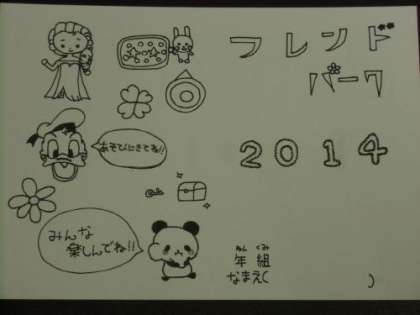 フレンド
パーク
2014
あそびにきてね!!
みんな
楽しんでね!!
ねん くみ
年 組
なまえ( )